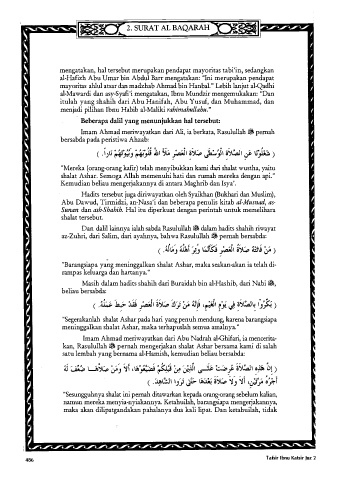 2. SURAT AL BAQARAH
mengatakan, hal tersebut merupakan pendapat mayoritas tabi'in, sedangkan
al-Hafizh Abu Umar bin Abdul Barr mengatakan: "Ini merupakan pendapat
mayoritas ahlul atsar dan madzhab Ahmad bin Hanbal." Lebih lanjut al-Qadhi
al-Mawardi dan asy-Syafi'i mengatakan, Ibnu Mundzir mengemukakan: "Dan
itulah yang shahih dari Abu Hanifah, Abu Yusuf, dan Muhammad, dan
menjadi pilihan Ibnu Habib al-Maliki rahimahullahu."
Beberapa dalil yang menunjukkan hal tersebut:
Imam Ahmad meriwayatkan dari Ali, ia berkata, Rasulullah ﷺ pernah
bersabda pada peristiwa Ahzab:
( شَغَلُوْنَا عَنِ الصَّلاَةِ الْوُسْطَى صَلاَةِ الْعَصْرِ مَلَأَ اللهُ قُلُوْبَهُمْ وَبُيُوْتَهُمْ نَارًا. )
"Mereka (orang-orang kafir) telah menyibukkan kami dari shalat wustha, yaitu
shalat Ashar. Semoga Allah memenuhi hati dan rumah mereka dengan api."
Kemudian beliau mengerjakannya di antara Maghrib dan Isya'.
Hadits tersebut juga diriwayatkan oleh Syaikhan (Bukhari dan Muslim),
Abu Dawud, Tirmidzi, an-Nasa'i dan beberapa penulis kitab al-Musnad, as-
Sunan dan ash-Shahih. Hal itu diperkuat dengan perintah untuk memelihara
shalat tersebut.
Dan dalil lainnya ialah sabda Rasulullah ﷺ dalam hadits shahih riwayat
az-Zuhri, dari Salim, dari ayahnya, bahwa Rasulullah ﷺ pernah bersabda:
( مَنْ فَاتَتْهُ صَلاَةُ الْعَصْرِ فَكَأَنَّمَا وُتِرَ أَهْلُهُ وَمَالُهُ. )
"Barangsiapa yang meninggalkan shalat Ashar, maka seakan-akan ia telah di-
rampas keluarga dan hartanya."
Masih dalam hadits shahih dari Buraidah bin al-Hashib, dari Nabi ﷺ,
beliau bersabda:
( بَكِّرُوْا بِالصَّلاَةِ فِي يَوْمِ الْغَيْمِ، فَإِنَّهُ مَنْ تَرَكَ صَلاَةَ الْعَصْرِ فَقَدْ حَبِطَ عَمَلُهُ. )
"Segerakanlah shalat Ashar pada hari yang penuh mendung, karena barangsiapa
meninggalkan shalat Ashar, maka terhapuslah semua amalnya."
Imam Ahmad meriwayatkan dari Abu Nadrah al-Ghifari, ia mencerita-
kan, Rasulullah ﷺ pernah mengerjakan shalat Ashar bersama kami di salah
satu lembah yang bernama al-Hamish, kemudian beliau bersabda:
( إِنَّ هَذِهِ الصَّلاَةَ عُرِضَتْ عَلَى الَّذِيْنَ مِنْ قَبْلِكُمْ فَضَيَّعُوْهَا، أَلاَ وَمَنْ صَلاَّهَا ضُعِّفَ لَهُ
أَجْرُهُ مَرَّتَيْنِ، أَلاَ وَلاَ صَلاَةَ بَعْدَهَا حَتَّى تَرَوُا الشَّاهِدَ. )
"Sesungguhnya shalat ini pernah ditawarkan kepada orang-orang sebelum kalian,
namun mereka menyia-nyiakannya. Ketahuilah, barangsiapa mengerjakannya,
maka akan dilipatgandakan pahalanya dua kali lipat. Dan ketahuilah, tidak
486
Tafsir Ibnu Katsir Juz 2